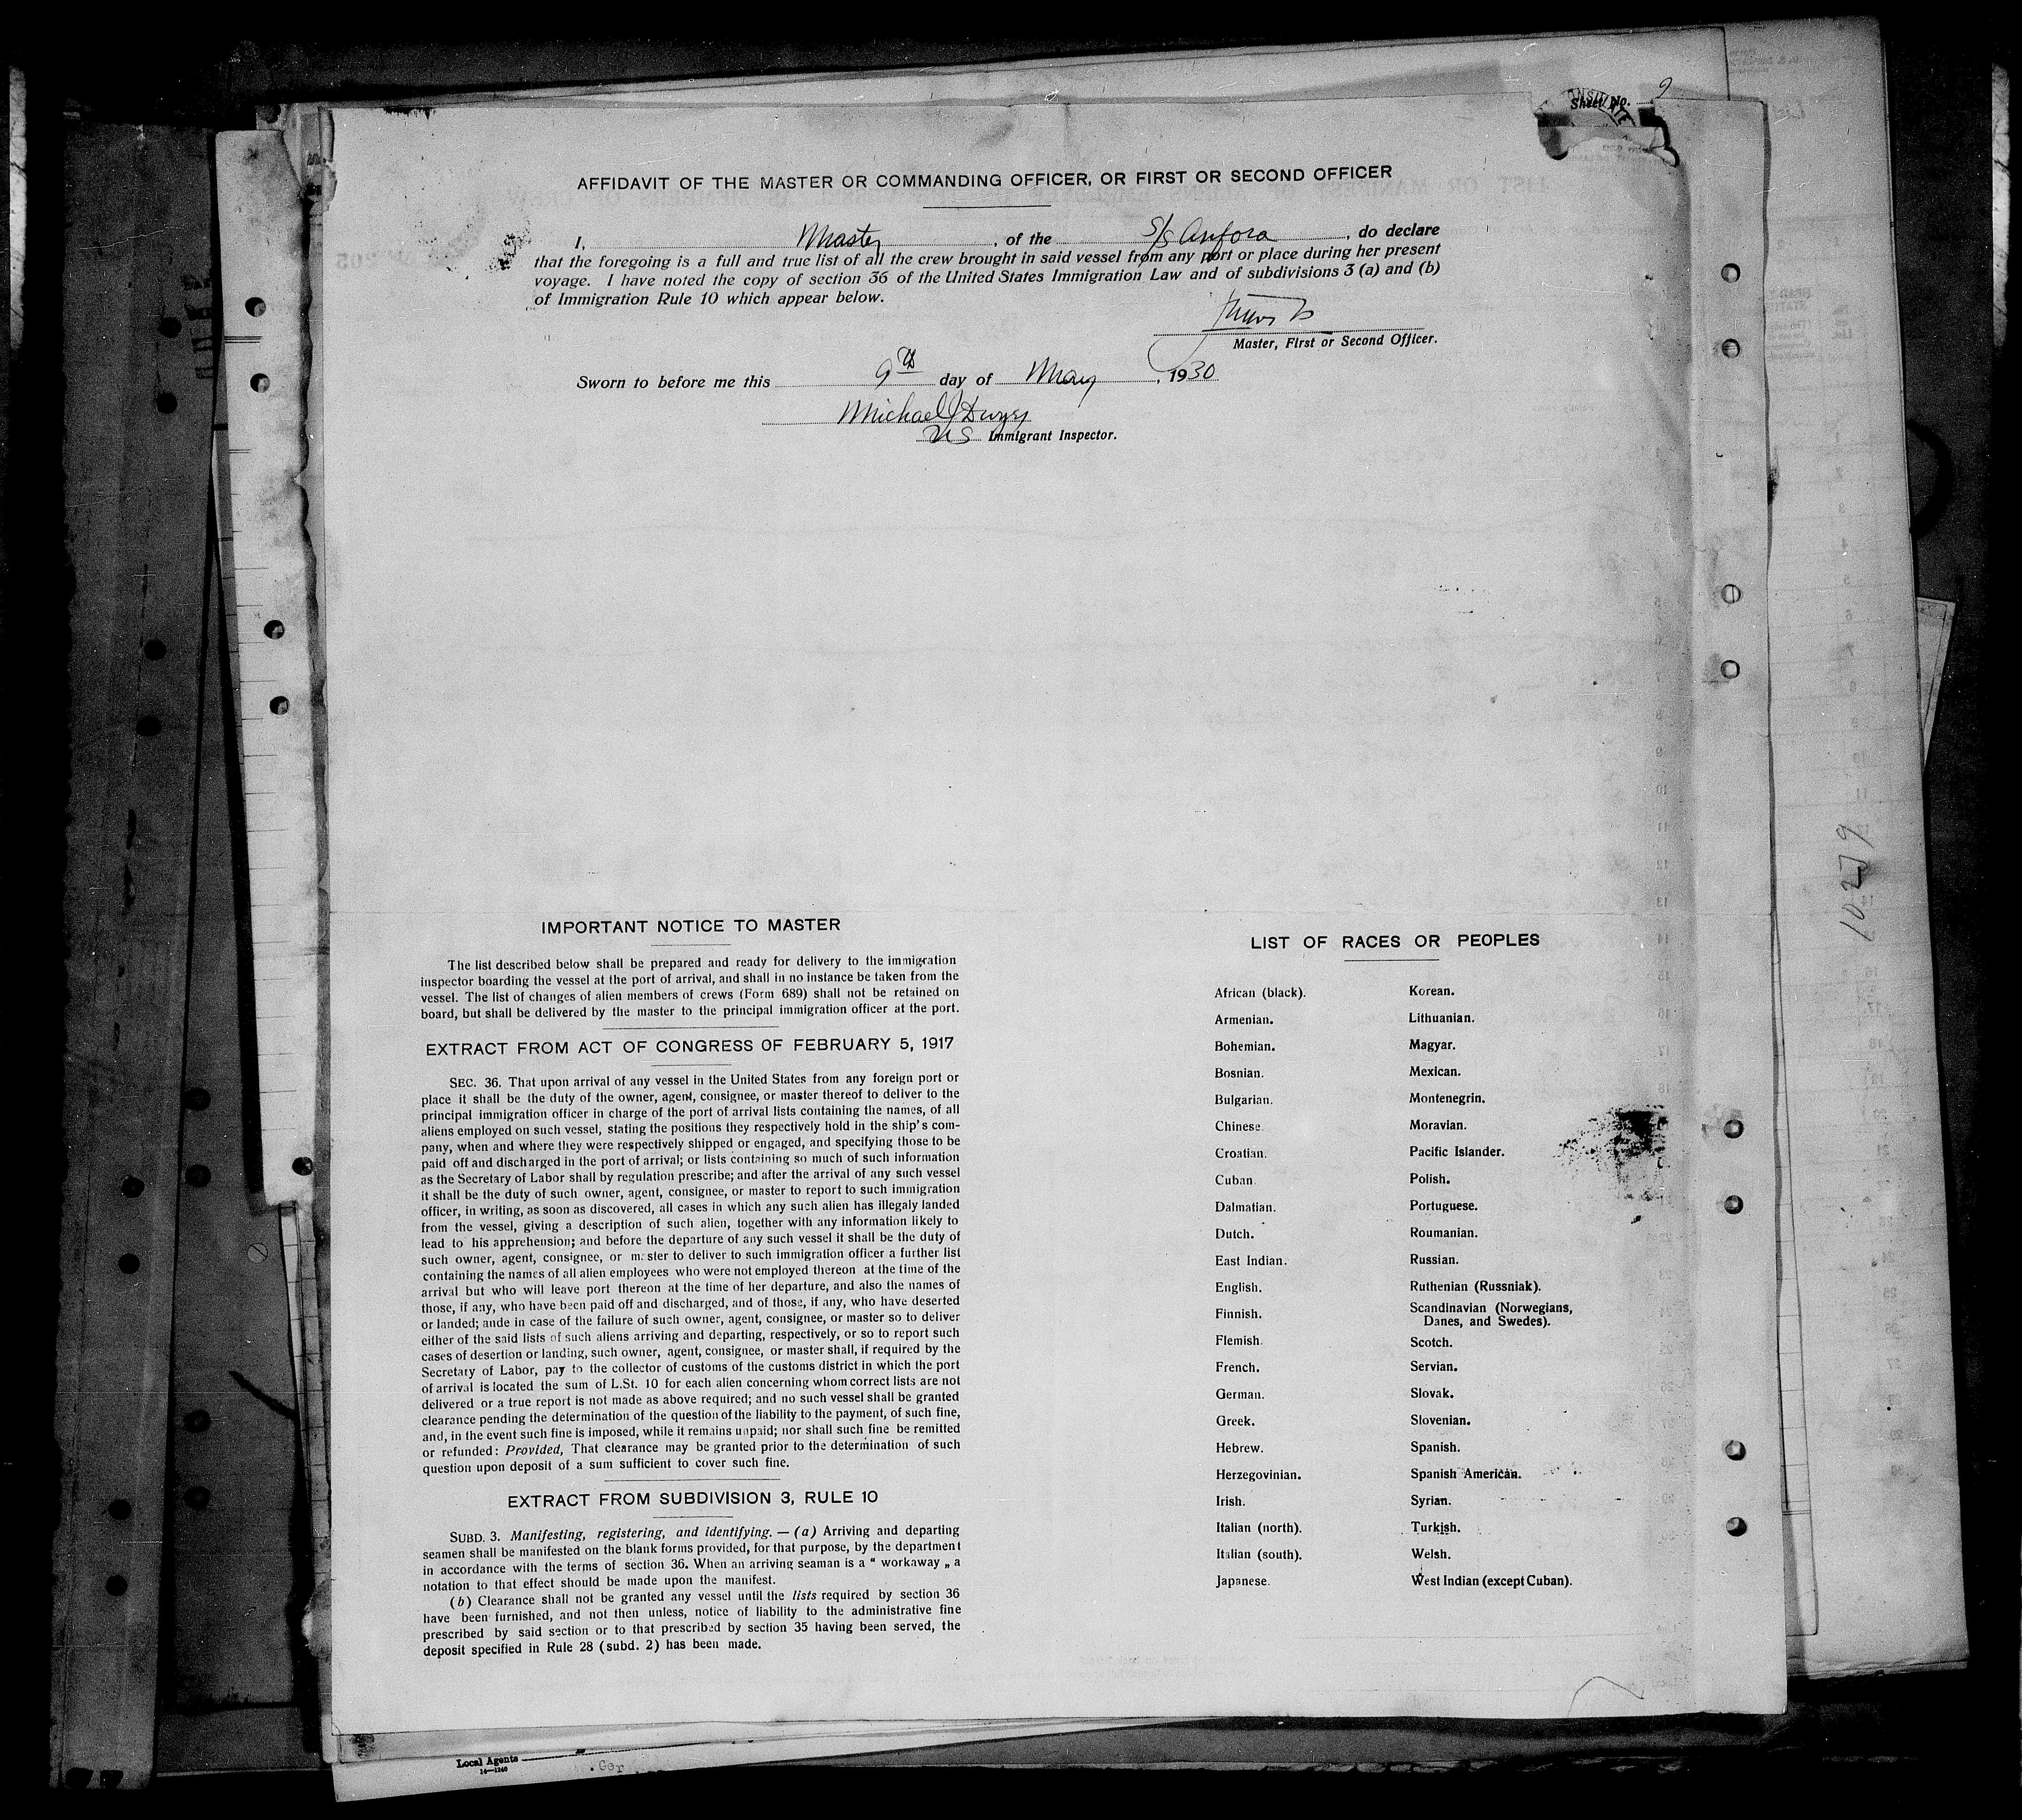 Sheet No. 9
AFFIDAVIT OF THE MASTER OR COMMANDING OFFICER, OR FIRST OR SECOND OFFICER
I, Master, of the S/S Anfora, do declare
that the foregoing is a full and true list of all the crew brought in said vessel from any port or place during her present
voyage. I have noted the copy of section 36 of the United States Immigration Law and of subdivisions 3 (a) and (b)
of Immigration Rule 10 which appear below.
Master, First or Second Officer.
Sworn to before me this 9th day of May, 1930
Michael J
US Immigrant Inspector.
IMPORTANT NOTICE TO MASTER
The list described below shall be prepared and ready for delivery to the immigration
inspector boarding the vessel at the port of arrival, and shall in no instance be taken from the
vessel. The list of changes of alien members of crews (Form 689) shall not be retained on
board, but shall be delivered by the master to the principal immigration officer at the port.
EXTRACT FROM ACT OF CONGRESS OF FEBRUARY 5, 1917
SEC. 36. That upon arrival of any vessel in the United States from any foreign port or
place it shall be the duty of the owner, agent, consignee, or master thereof to deliver to the
principal immigration officer in charge of the port of arrival lists containing the names, of all
aliens employed on such vessel, stating the positions they respectively hold in the ship's com-
pany, when and where they were respectively shipped or engaged, and specifying those to be
paid off and discharged in the port of arrival; or lists containing so much of such information
as the Secretary of Labor shall by regulation prescribe; and after the arrival of any such vessel
it shall be the duty of such owner, agent, consignee, or master to report to such immigration
officer, in writing, as soon as discovered, all cases in which any such alien has illegaly landed
from the vessel, giving a description of such alien, together with any information likely to
lead to his apprehension; and before the departure of any such vessel it shall be the duty of
such owner, agent, consignee, or master to deliver to such immigration officer a further list
containing the names of all alien employees who were not employed thereon at the time of the
arrival but who will leave port thereon at the time of her departure, and also the names of
those, if any, who have been paid off and discharged, and of those, if any, who have deserted
or landed; ande in case of the failure of such owner, agent, consignee, or master so to deliver
either of the said lists of such aliens arriving and departing, respectively, or so to report such
cases of desertion or landing, such owner, agent, consignee, or master shall, if required by the
Secretary of Labor, pay to the collector of customs of the customs district in which the port
of arrival is located the sum of L.St. 10 for each alien concerning whom correct lists are not
delivered or a true report is not made as above required; and no such vessel shall be granted
clearance pending the determination of the question of the liability to the payment, of such fine,
and, in the event such fine is imposed, while it remains unpaid; nor shall such fine be remitted
or refunded: Provided, That clearance may be granted prior to the determination of such
question upon deposit of a sum sufficient to cover such fine.
EXTRACT FROM SUBDIVISION 3, RULE 10
SUBD. 3. Manifesting, registering, and identifying. — (a) Arriving and departing
seamen shall be manifested on the blank forms provided, for that purpose, by the department
in accordance with the terms of section 36. When an arriving seaman is a “ workaway „ a
notation to that effect should be made upon the manifest.
(b) Clearance shall not be granted any vessel until the lists required by section 36
have been furnished, and not then unless, notice of liability to the administrative fine
prescribed by said section or to that prescribed by section 35 having been served, the
deposit specified in Rule 28 (subd. 2) has been made.
LIST OF RACES OR PEOPLES
African (black).
Armenian.
Bohemian.
Bosnian.
Bulgarian.
Chinese
Croatian.
Cuban
Dalmatian.
Dutch.
East Indian.
English.
Finnish.
Flemish.
French.
German.
Greek.
Hebrew.
Herzegovinian.
Irish.
Italian (north).
Italian (south).
Japanese.
Korean.
Lithuanian.
Magyar.
Mexican.
Montenegrin.
Moravian.
Pacific Islander.
Polish.
Portuguese.
Roumanian.
Russian.
Ruthenian (Russniak).
Scandinavian (Norwegians,
Danes, and Swedes).
Scotch.
Servian.
Slovak.
Slovenian.
Spanish.
Spanish American.
Syrian.
Turkish.
Welsh.
West Indian (except Cuban).
Local Agents
14—1240